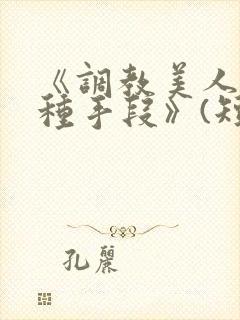 《調教美人
種手段》(短
孔麗